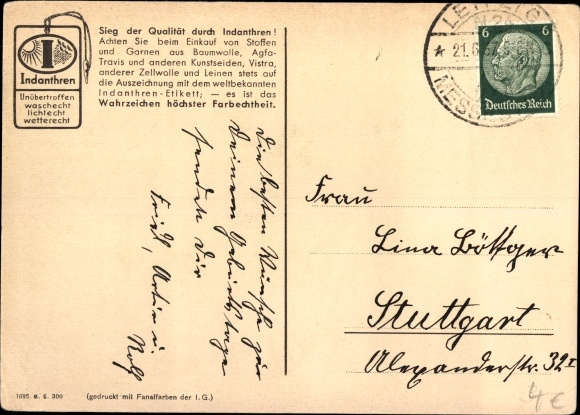 Sieg der Qualität durch Indanthren!
Achten Sie beim Einkauf von Stoffen
und Garnen aus Baumwolle, Agfa-
Travis und anderen Kunstseiden, Vistra,
anderer Zellwolle und Leinen stets auf
die Auszeichnung mit dem weltbekannten
Indanthren-Etikett; — es ist das
Wahrzeichen höchster Farbechtheit.
I
Indanthren
Unübertroffen
waschecht
lichtecht
wetterecht
LEIPZIG
N 26
* 21.6
MESS
6 6
Deutsches Reich
Die besten Wünsche zu
Deinem Geburtstage
senden Dir
Fried, u.
Rolf
Frau
Lina Böttger
Stuttgart
Alexanderstr. 32 I
1095. e. 6. 300 (gedruckt mit Fanalfarben der I.G.)
4 €